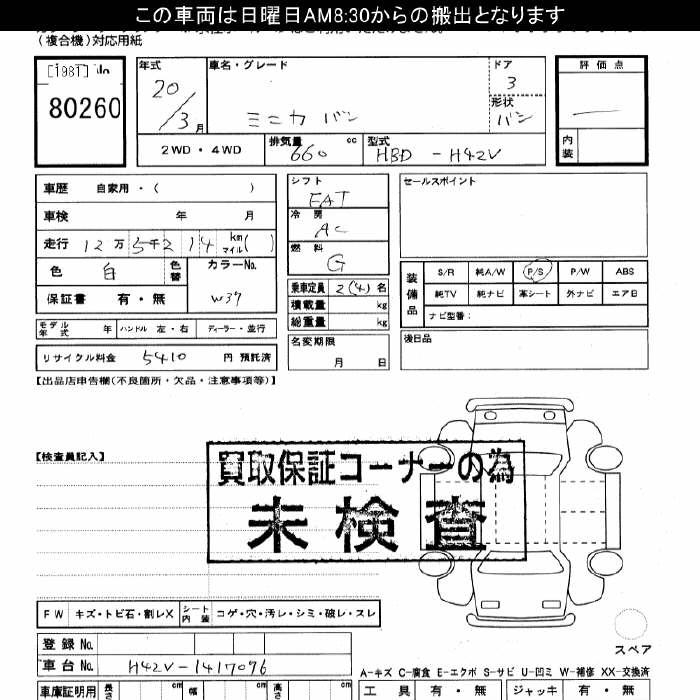 この車両は日曜日AM8:30からの搬出となります
(複合機)対応用紙
80260
年式 20/3月
車名・グレード ミニカバン
ドア 3
形状 バン
評価点 —
内装
2WD・4WD
排気量 660 cc
型式 HBD-H42V
車歴 自家用・( )
車検 年 月
走行 12万5千214 km マイル( )
色 白 色替
カラーNo. W37
保証書 有・無
モデル年式 年 ハンドル 左・右 ディーラー・並行
リサイクル料金 5410 円 預託済
シフト FAT
冷房 AC
燃料 G
乗車定員 2(4)名
積載量 kg
総重量 kg
名変期限 月 日
セールスポイント
装備品
S/R 純A/W P/S P/W ABS
純TV 純ナビ 革シート 外ナビ エアB
ナビ型番:
後日品
【出品店申告欄(不良箇所・欠品・注意事項等)】
【検査員記入】
買取保証コーナーの為
未検査
FW キズ・トビ石・割レX シート内装 コゲ・穴・汚レ・シミ・破レ・スレ
登録No.
車台No. H42V-1417096
スペア
A-キズ C-腐食 E-エクボ S-サビ U-凹ミ W-補修 XX-交換済
車庫証明用 長さ cm 幅 cm 高さ cm
工具 有・無 ジャッキ 有・無